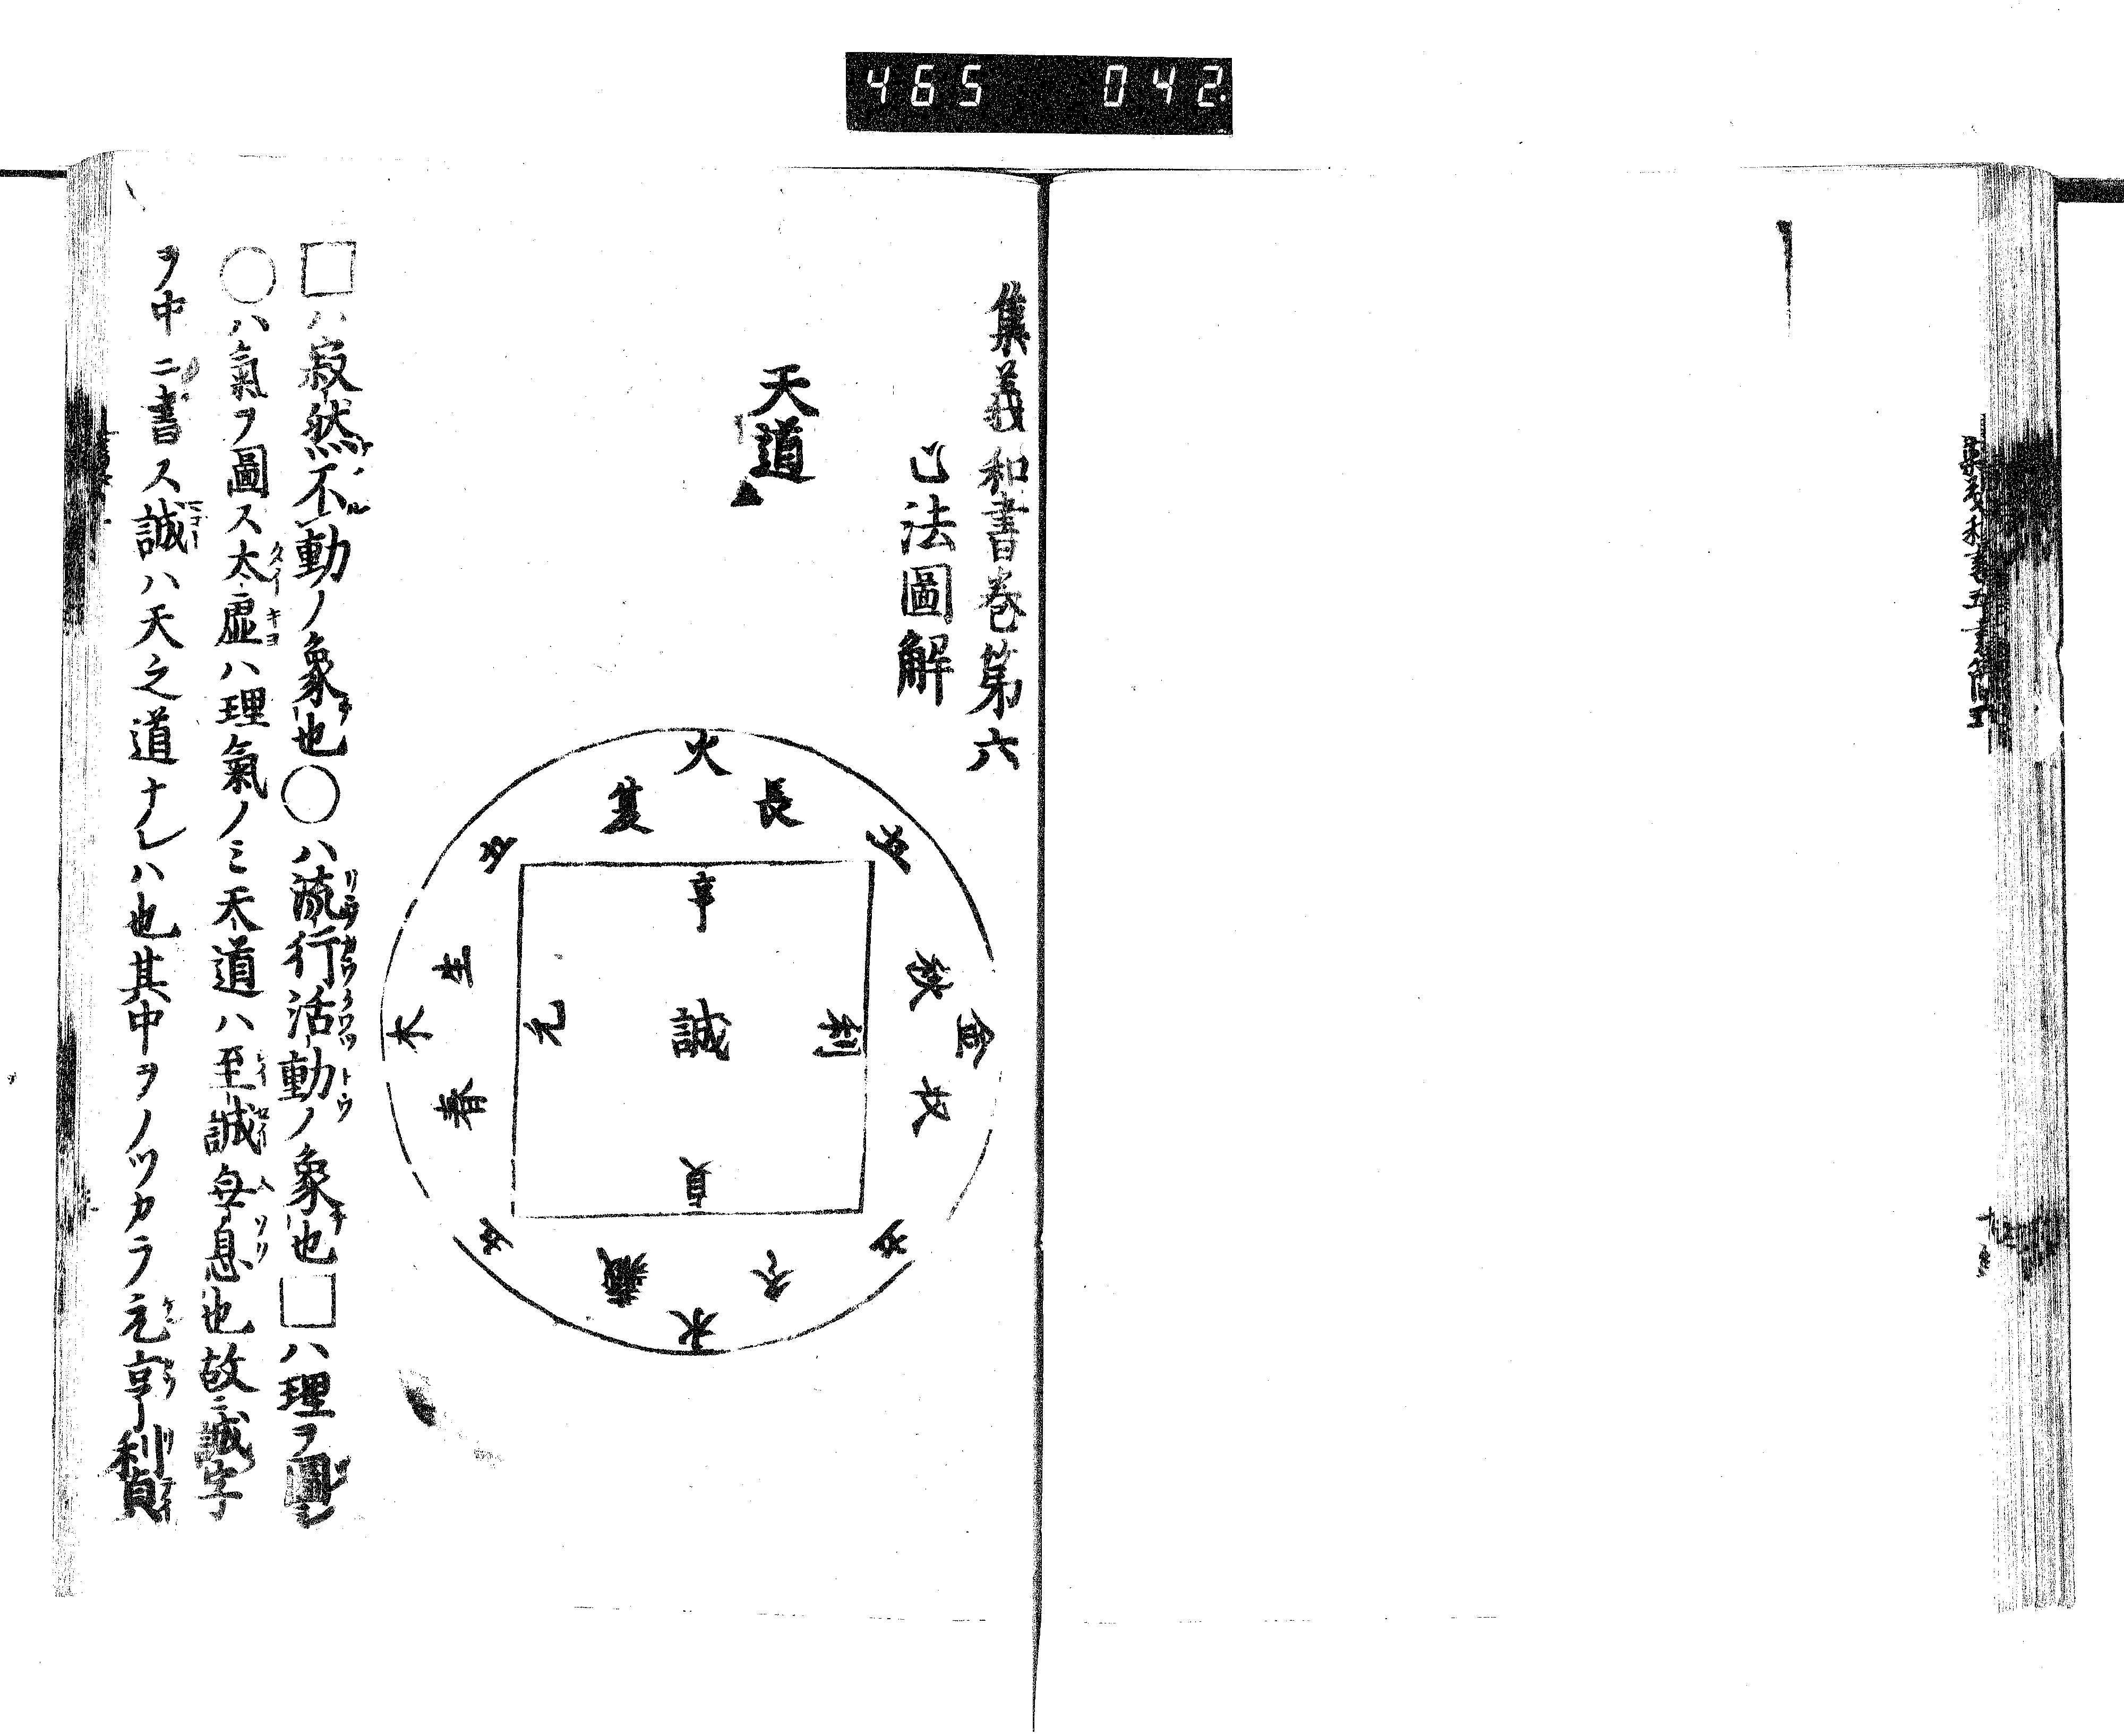 465 042
集義和書巻第六
心法圖解
天道
火
長
夏
土
土
亨
生
秋
元
誠
利
木
金
春
収
貞
土
土
藏
冬
水
□ハ寂然不動ノ象也○ハ流行活動ノ象也□ハ理ヲ圖シ
○ハ氣ヲ圖ス太虚ハ理氣ノミ天道ハ至誠無息也故ニ誠字
ヲ中ニ書ス誠ハ天之道ナレハ也其中ヲノツカラ元亨利貞